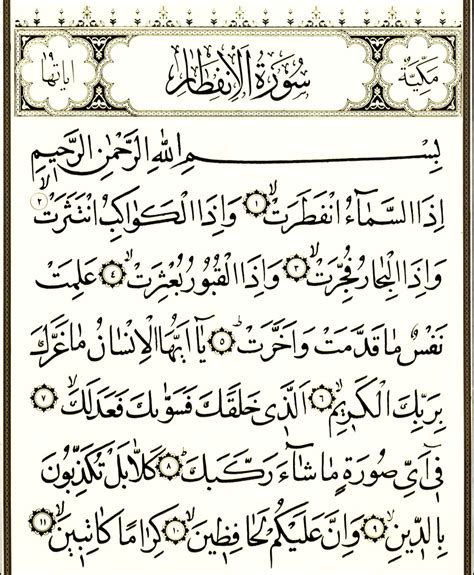 مكية سورة الانفطار اياتها
بِسْمِ اللهِ الرَّحْمٰنِ الرَّحِيمِ
اِذَا السَّمَٓاءُ انْفَطَرَتْۙ ﴿١﴾ وَاِذَا الْكَوَاكِبُ انْتَثَرَتْۙ ﴿٢﴾
وَاِذَا الْبِحَارُ فُجِّرَتْۙ ﴿٣﴾ وَاِذَا الْقُبُورُ بُعْثِرَتْۙ ﴿٤﴾ عَلِمَتْ
نَفْسٌ مَا قَدَّمَتْ وَاَخَّرَتْۜ ﴿٥﴾ يَٓا اَيُّهَا الْاِنْسَانُ مَا غَرَّكَ
بِرَبِّكَ الْكَرِيمِۙ ﴿٦﴾ اَلَّذِي خَلَقَكَ فَسَوّٰيكَ فَعَدَلَكَۙ ﴿٧﴾
فِٓي اَيِّ صُورَةٍ مَا شَٓاءَ رَكَّبَكَۜ ﴿٨﴾ كَلَّا بَلْ تُكَذِّبُونَ
بِالدِّينِۙ ﴿٩﴾ وَاِنَّ عَلَيْكُمْ لَحَافِظِينَۙ ﴿١٠﴾ كِرَامًا كَاتِبِينَۙ ﴿١١﴾